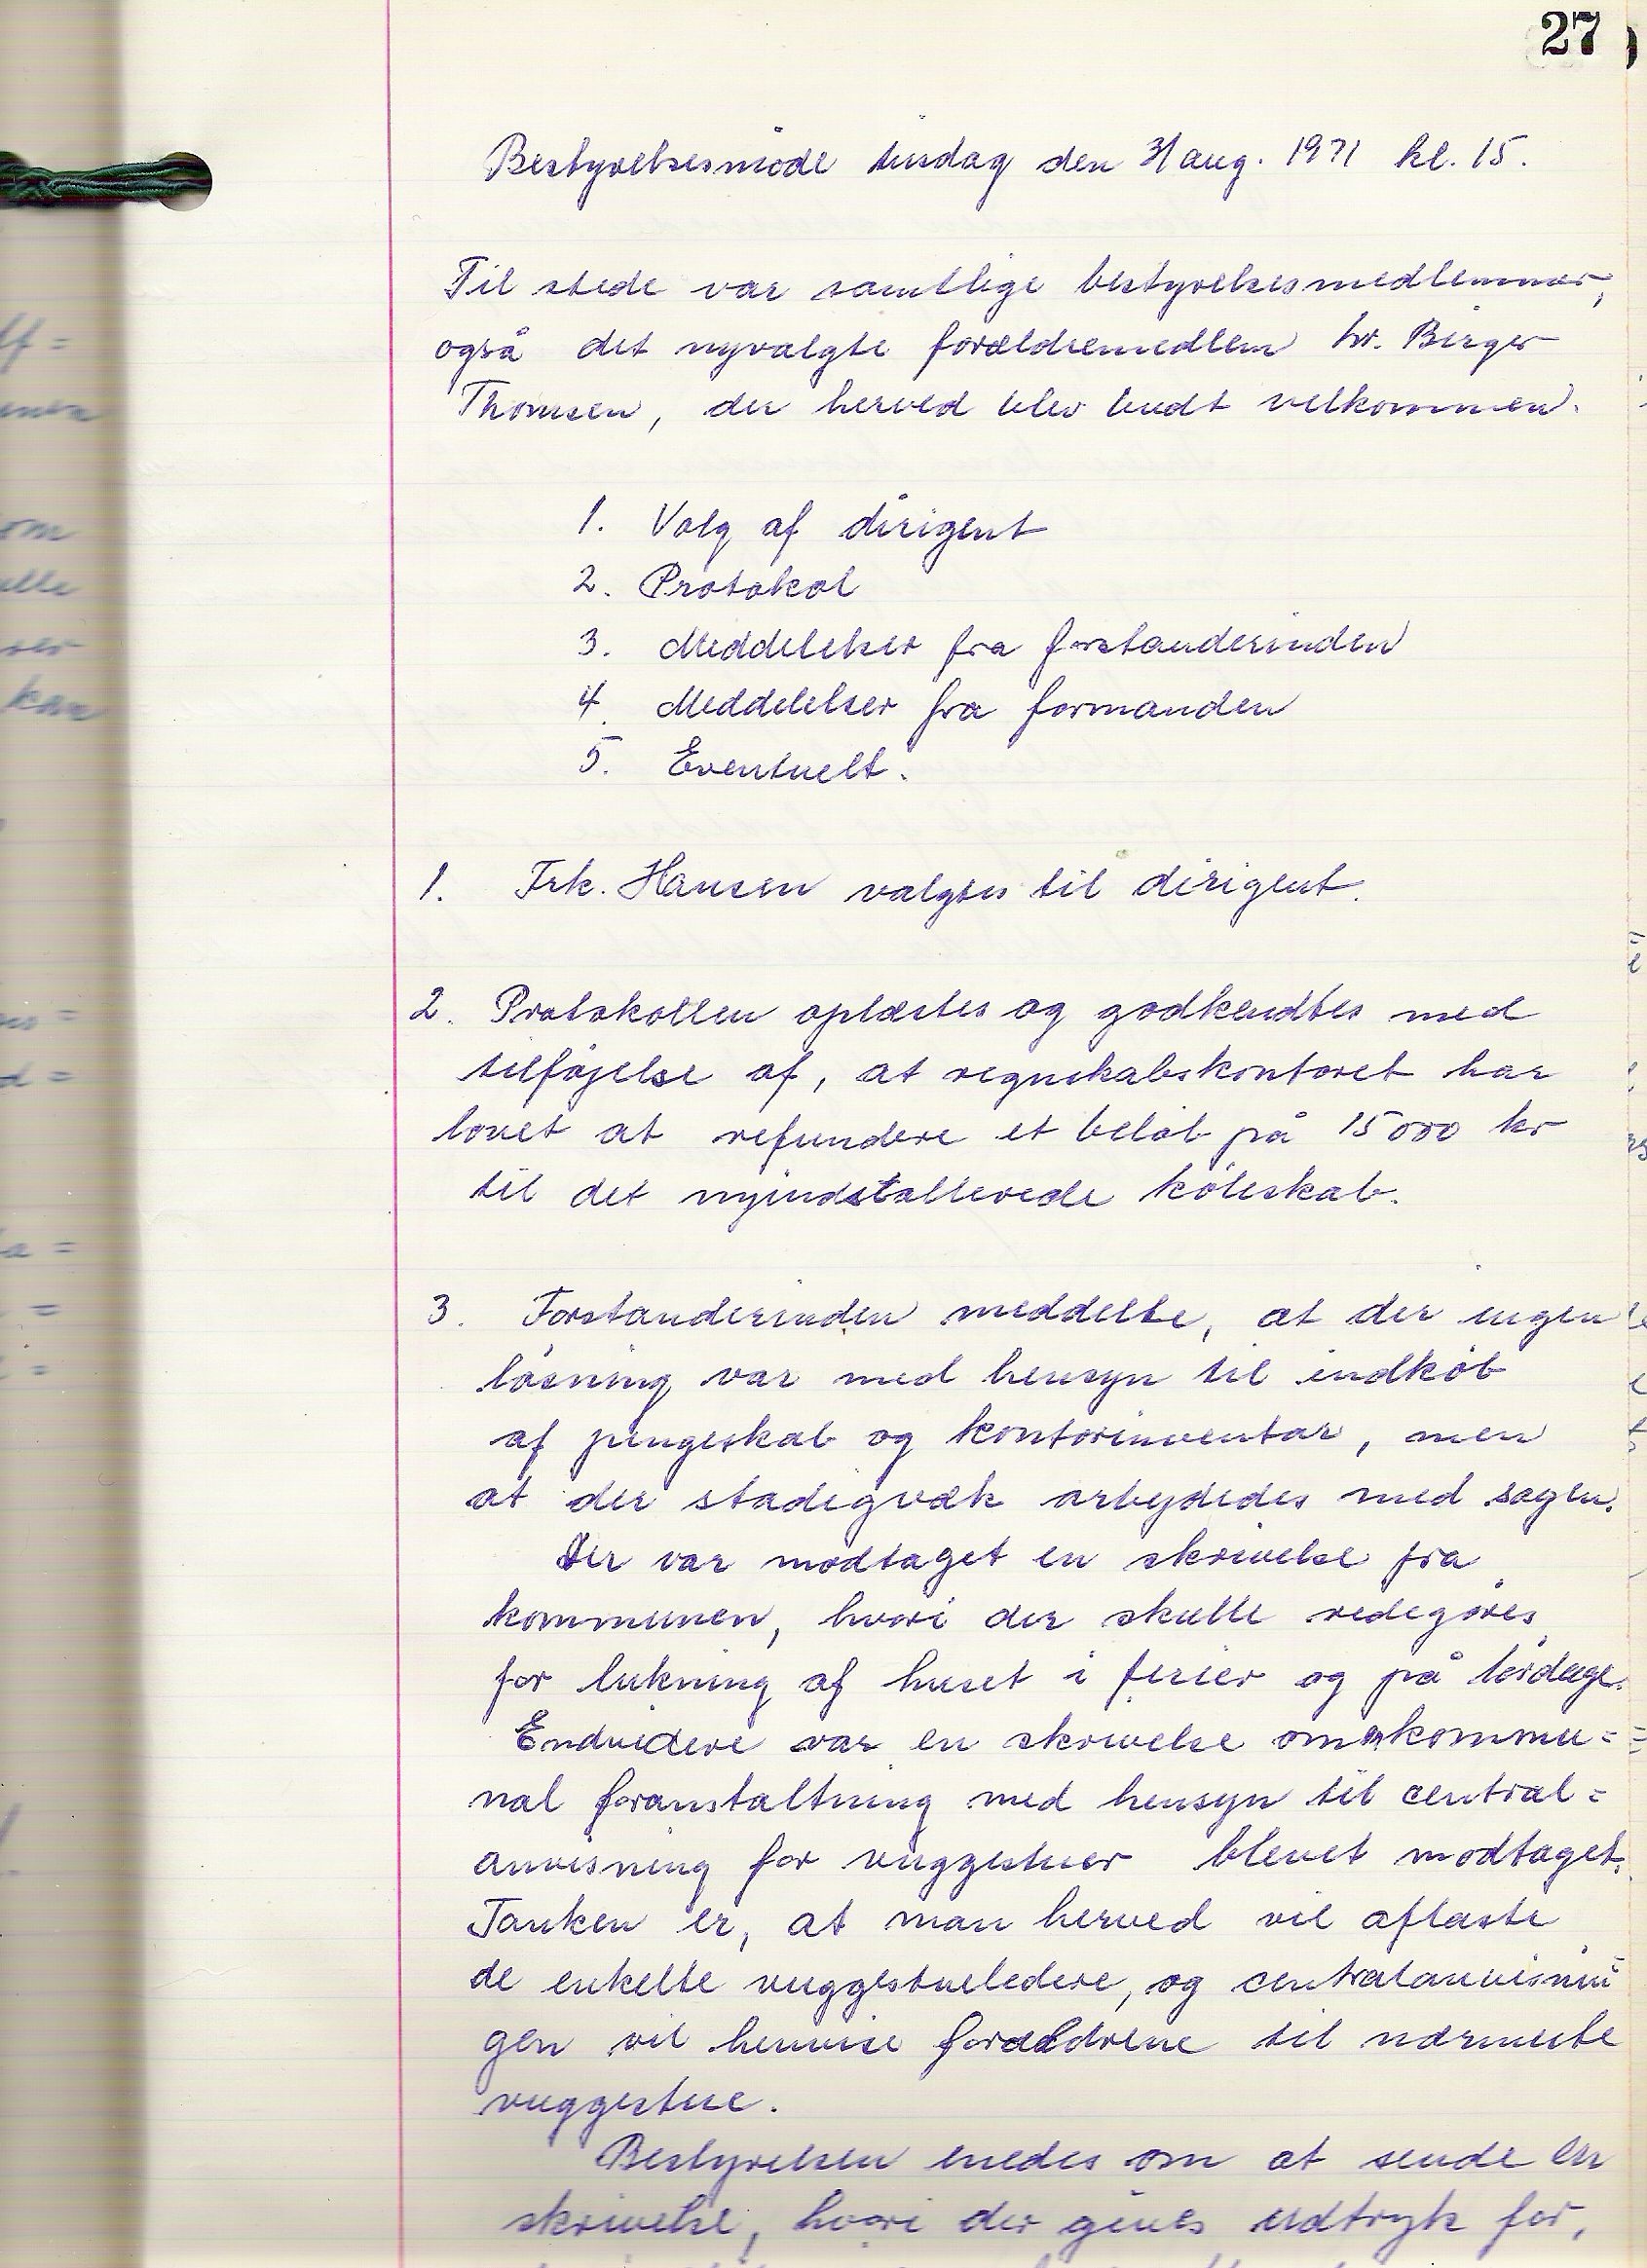 27
Bestyrelsesmøde tirsdag den 31 aug. 1971 kl. 15.
Til stede var samtlige bestyrelsesmedlemmer,
også det nyvalgte forældremedlem hr. Birger
Thomsen, der herved blev budt velkommen.
1. Valg af dirigent
2. Protokol
3. Meddelelser fra forstanderinden
4. Meddelelser fra formanden
5. Eventuelt.
1. Frk. Hansen valgtes til dirigent.
2. Protokollen oplæstes og godkendtes med
tilføjelse af, at regnskabskontoret har
lovet at refundere et beløb på 15000 kr
til det nyindstallerede køleskab.
3. Forstanderinden meddelte, at der ingen
løsning var med hensyn til indkøb
af pengeskab og kontorinventar, men
at der stadigvæk arbejdedes med sagen.
Der var modtaget en skrivelse fra
kommunen, hvori der skulle redegøres
for lukning af huset i ferier og på lørdage.
Endvidere var en skrivelse om kommu=
nal foranstaltning med hensyn til central=
anvisning for vuggestuer blevet modtaget.
Tanken er, at man herved vil aflaste
de enkelte vuggestueledere, og centralanvisnin
gen vil henvise forældrene til nærmeste
vuggestue.
Bestyrelsen enedes om at sende en
skrivelse, hvori der gives udtryk for,